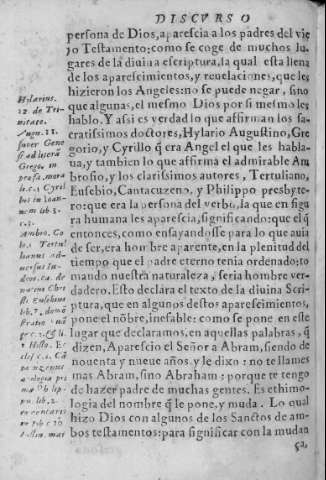 DISCVRSO
persona de Dios, aparescia a los padres del vie
jo Testamento: como se coge de muchos lu
gares de la diuina escriptura, la qual esta llena
de los aparescimientos, y reuelaciones, que les
hizieron los Angeles: no se puede negar, sino
que algunas, el mesmo Dios por si mesmo les
hablo. Y assi es verdad lo que affirman los sa-
cratissimos doctores, Hylario Augustino, Gre
gorio, y Cyrillo q̃ era Angel el que les habla-
ua, y tambien lo que affirma el admirable Am
brosio, y los clarissimos autores, Tertuliano,
Eusebio, Cantacuzeno, y Philippo presbyte-
ro: que era la persona del verbo, la que en figu
ra humana les aparescia, significando: que el q̃
entonces, como ensayandosse para lo que auia
de ser, era hombre aparente, en la plenitud del
tiempo que el padre eterno tenia ordenado; to
mando nuestra naturaleza, seria hombre ver-
dadero. Esto declara el texto de la diuina Scri
ptura, que en algunos destos aparescimientos,
pone el nõbre, inefable: como se pone en este
lugar que declaramos, en aquellas palabras, q̃
dizen, Aparescio el Señor a Abram, siendo de
nouenta y nueue años y le dixo: no te llames
mas Abram, sino Abraham: porque te tengo
de hazer padre de muchas gentes. Es ethimo-
logia del nombre q̃ le pone, y muda. Lo qual
hizo Dios con algunos de los Sanctos de am-
bos testamentos: para significar con la mudan
ça,
Hylarius.
12. de Tri-
nitate.
Augu. 11.
super Gene
si ad literã
Grego. in
præfa. mora
li. c. 1. Cyril
bus in Ioan-
nem lib. 8.
Ambro. Co
lo. Tertul
lianus ad-
uersus Iu-
deos. ca. de
Eusebius
lib. 7. demõ